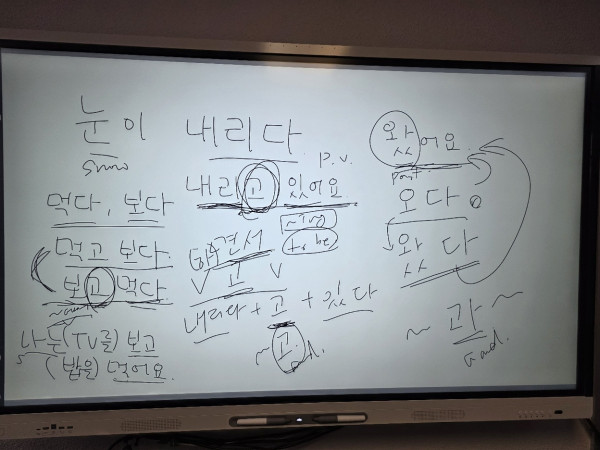 눈이
snow
먹다, 보다
먹고 보다.
보고 먹다
나는 (TV를) 보고
s
(밥을) 먹어요.
내리다
p.v.
내리고 있어요
~ing
to be
V 고 V
내리다 + 고 + 있다
~고.
and.
왔어요.
past
오다.
왔다
~과~
and